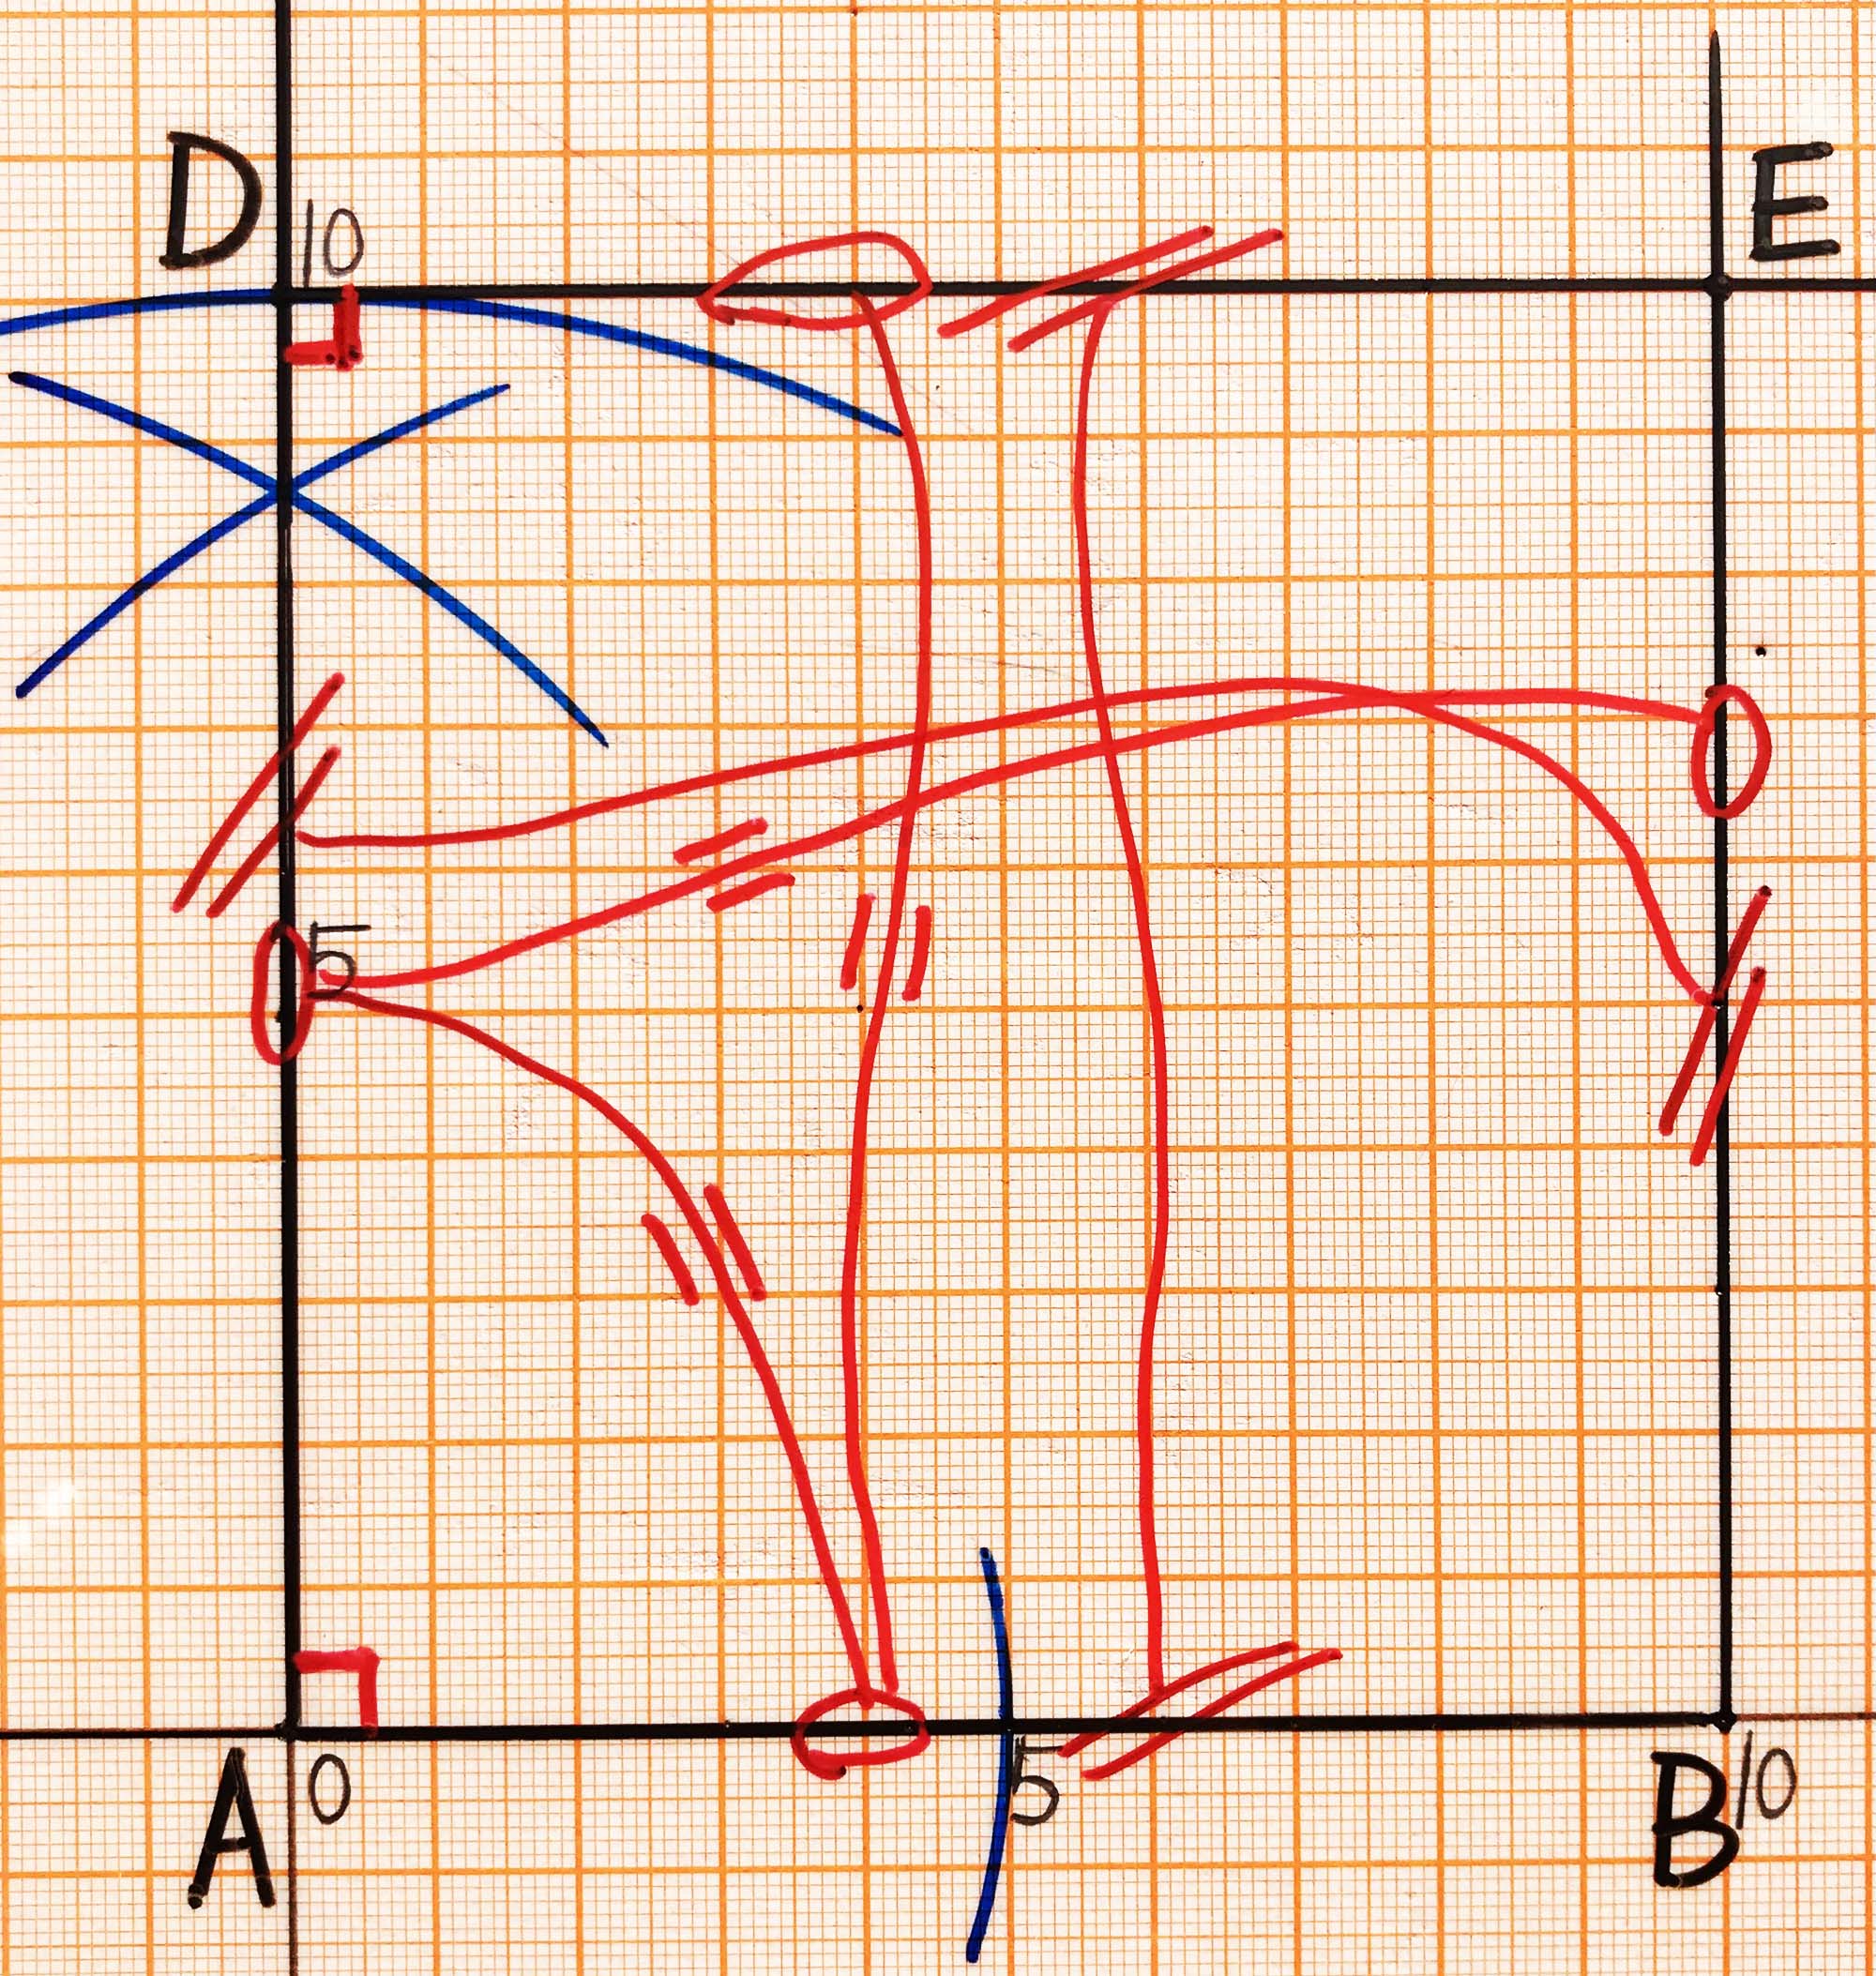 D 10 E
5
A 0 5 B 10